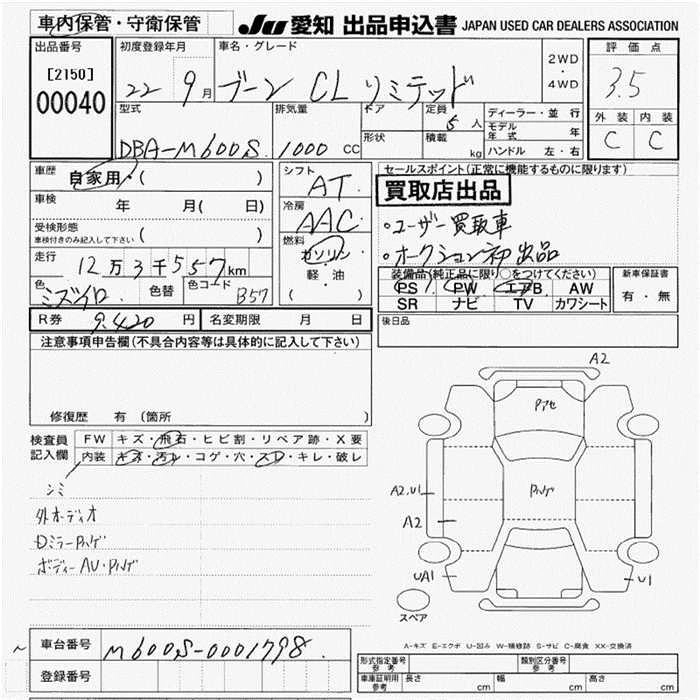 車内保管・守衛保管
JU 愛知 出品申込書 JAPAN USED CAR DEALERS ASSOCIATION
出品番号
[2150]
00040
初度登録年月
22 9月
車名・グレード
ブーン CL リミテッド
2WD
・
4WD
評価点
3.5
外装 内装
C C
型式
DBA-M600S
排気量
1000 cc
ドア
形状
定員
5 人
積載
kg
ディーラー・並行
モデル年式 年
ハンドル 左・右
車歴
自家用・( )
車検
年 月( 日)
受検形態
車検付きのみ記入して下さい ( )
走行
12万3千557km
色
ミズイロ
色替
色コード
B57
シフト
AT
冷房
AAC
燃料
ガソリン
軽・油
( )
セールスポイント(正常に機能するものに限ります)
買取店出品
・ユーザー買取車
・オークション初出品
装備品(純正品に限り○をつけてください)
PS PW エアB AW
SR ナビ TV カワシート
新車保証書
有・無
R券 9.420円
名変期限 月 日
後日品
注意事項申告欄(不具合内容等は具体的に記入して下さい)
修復歴 有(箇所 )
検査員
記入欄
FW キズ・飛石・ヒビ割・リペア跡・X要
内装 キズ・汚レ・コゲ・穴・スレ・キレ・破レ
シミ
外オーディオ
Dミラー
ボディーAU・
A2
A2.U1
A2
UA1
U1
スペア
A-キズ E-エクボ U-凹み W-補修跡 S-サビ C-腐食 XX-交換済
車台番号
M600S-0001798
登録番号
型式指定番号
参考
類別区分番号
参考
車庫証明用
参考
長さ cm
幅 cm
高さ cm